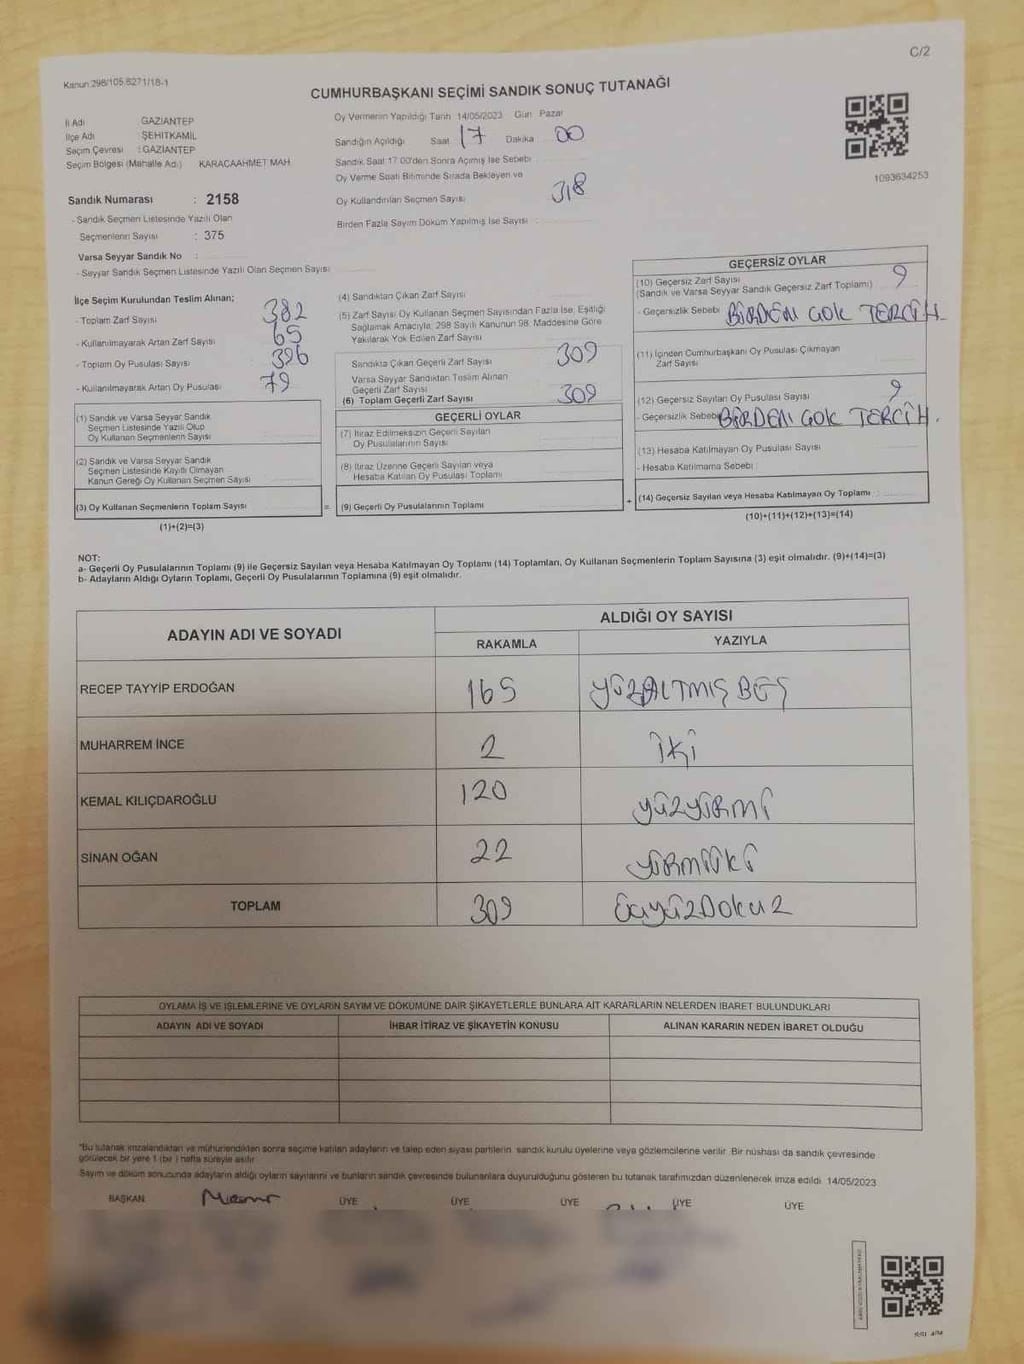 C/2
Kanun 298/105,6271/18-1
CUMHURBAŞKANI SEÇİMİ SANDIK SONUÇ TUTANAĞI
İl Adı GAZİANTEP
İlçe Adı ŞEHİTKAMİL
Seçim Çevresi : GAZİANTEP
Seçim Bölgesi (Mahalle Adı) KARACAAHMET MAH
Sandık Numarası : 2158
- Sandık Seçmen Listesinde Yazılı Olan
Seçmenlerin Sayısı : 375
Varsa Seyyar Sandık No :
- Seyyar Sandık Seçmen Listesinde Yazılı Olan Seçmen Sayısı
Oy Vermenin Yapıldığı Tarih 14/05/2023 Gün Pazar
Sandığın Açıldığı Saat 17 Dakika 00
Sandık Saat 17.00'den Sonra Açılmış İse Sebebi
Oy Verme Saati Bitiminde Sırada Bekleyen ve
Oy Kullandırılan Seçmen Sayısı 318
Birden Fazla Sayım Döküm Yapılmış İse Sayısı
1093634253
İlçe Seçim Kurulundan Teslim Alınan;
- Toplam Zarf Sayısı 382
- Kullanılmayarak Artan Zarf Sayısı 65
- Toplam Oy Pusulası Sayısı 396
- Kullanılmayarak Artan Oy Pusulası 79
(1) Sandık ve Varsa Seyyar Sandık
Seçmen Listesinde Yazılı Olup
Oy Kullanan Seçmenlerin Sayısı
(2) Sandık ve Varsa Seyyar Sandık
Seçmen Listesinde Kayıtlı Olmayan
Kanun Gereği Oy Kullanan Seçmen Sayısı
(3) Oy Kullanan Seçmenlerin Toplam Sayısı =
(1)+(2)=(3)
(4) Sandıktan Çıkan Zarf Sayısı
(5) Zarf Sayısı Oy Kullanan Seçmen Sayısından Fazla İse, Eşitliği
Sağlamak Amacıyla, 298 Sayılı Kanunun 98. Maddesine Göre
Yakılarak Yok Edilen Zarf Sayısı
Sandıkta Çıkan Geçerli Zarf Sayısı 309
Varsa Seyyar Sandıktan Teslim Alınan
Geçerli Zarf Sayısı
(6) Toplam Geçerli Zarf Sayısı 309
GEÇERLİ OYLAR
(7) İtiraz Edilmeksizin Geçerli Sayılan
Oy Pusulalarının Sayısı
(8) İtiraz Üzerine Geçerli Sayılan veya
Hesaba Katılan Oy Pusulası Toplamı
(9) Geçerli Oy Pusulalarının Toplamı +
GEÇERSİZ OYLAR
(10) Geçersiz Zarf Sayısı 9
(Sandık ve Varsa Seyyar Sandık Geçersiz Zarf Toplamı)
- Geçersizlik Sebebi BİRDEN ÇOK TERCİH.
(11) İçinden Cumhurbaşkanı Oy Pusulası Çıkmayan
Zarf Sayısı
(12) Geçersiz Sayılan Oy Pusulası Sayısı 9
- Geçersizlik Sebebi BİRDEN ÇOK TERCİH.
(13) Hesaba Katılmayan Oy Pusulası Sayısı
- Hesaba Katılmama Sebebi
(14) Geçersiz Sayılan veya Hesaba Katılmayan Oy Toplamı
(10)+(11)+(12)+(13)=(14)
NOT:
a- Geçerli Oy Pusulalarının Toplamı (9) ile Geçersiz Sayılan veya Hesaba Katılmayan Oy Toplamı (14) Toplamları, Oy Kullanan Seçmenlerin Toplam Sayısına (3) eşit olmalıdır. (9)+(14)=(3)
b- Adayların Aldığı Oyların Toplamı, Geçerli Oy Pusulalarının Toplamına (9) eşit olmalıdır.
ADAYIN ADI VE SOYADI ALDIĞI OY SAYISI
RAKAMLA YAZIYLA
RECEP TAYYİP ERDOĞAN 165 YÜZALTMIŞ BEŞ
MUHARREM İNCE 2 İKİ
KEMAL KILIÇDAROĞLU 120 YÜZYİRMİ
SİNAN OĞAN 22 YİRMİİKİ
TOPLAM 309 ÜÇYÜZDOKUZ
OYLAMA İŞ VE İŞLEMLERİNE VE OYLARIN SAYIM VE DÖKÜMÜNE DAİR ŞİKAYETLERLE BUNLARA AİT KARARLARIN NELERDEN İBARET BULUNDUKLARI
ADAYIN ADI VE SOYADI İHBAR İTİRAZ VE ŞİKAYETİN KONUSU ALINAN KARARIN NEDEN İBARET OLDUĞU
*Bu tutanak imzalandıktan ve mühürlendikten sonra seçime katılan adayların ve talep eden siyasi partilerin sandık kurulu üyelerine veya gözlemcilerine verilir. Bir nüshası da sandık çevresinde
görülecek bir yere 1 (bir) hafta süreyle asılır.
Sayım ve döküm sonucunda adayların aldığı oyların sayılarını ve bunların sandık çevresinde bulunanlara duyurulduğunu gösteren bu tutanak tarafımızdan düzenlenerek imza edildi. 14/05/2023
BAŞKAN ÜYE ÜYE ÜYE ÜYE ÜYE